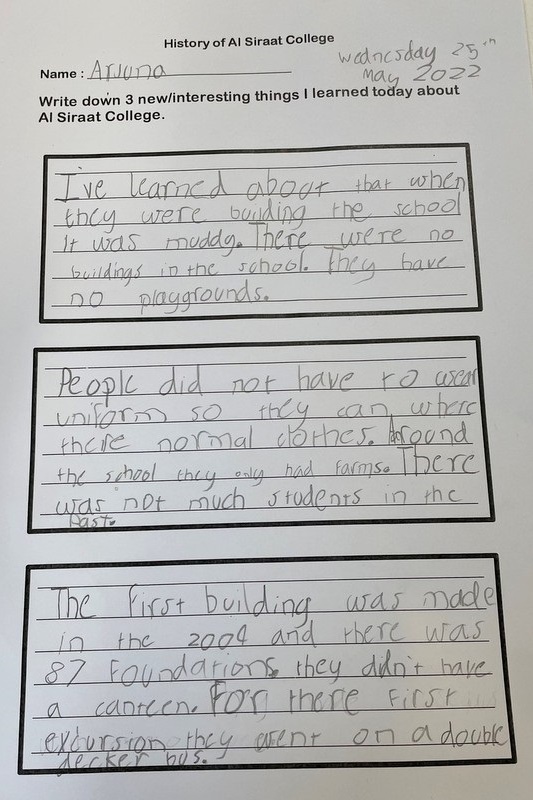 History of Al Siraat College
Wednesday 25th
Name : Arjuna
May 2022
Write down 3 new/interesting things I learned today about
Al Siraat College.
I've learned about that when
they were building the school
It was muddy. There were no
buildings in the school. They have
no playgrounds.
People did not have to wear
uniform so they can where
there normal clothes. Around
the school they only had farms. There
was not much students in the
Past.
The first building was made
in the 2004 and there was
87 Foundations. they didn't have
a canteen. For there first
excursion they went on a double
decker bus.